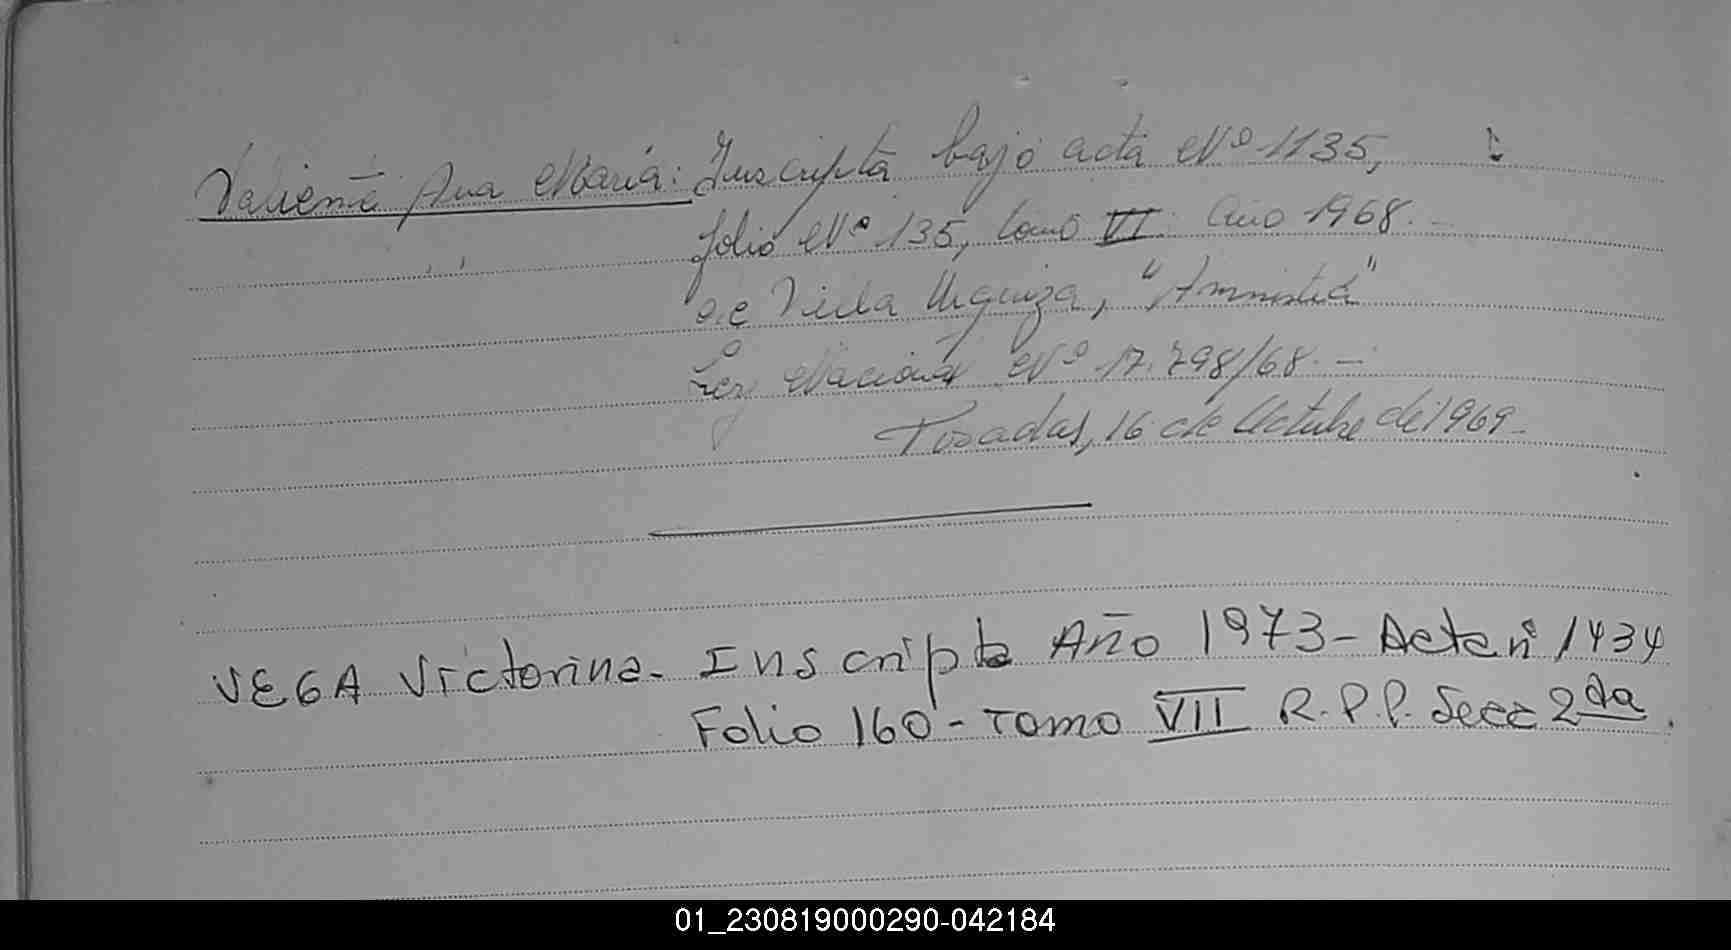 Valiente Ana Maria: Inscripta bajo acta Nº 1135,
folio Nº 135, tomo VI. Año 1968.-
de Villa Urquiza, "Amnistia"
Ley Nacional Nº 17.798/68.-
Posadas, 16 de Octubre de 1969-
VEGA Victorina- Inscripta Año 1973- Acta nº 1434
Folio 160 - Tomo VII R.P.P. Secc 2da.
01_230819000290-042184